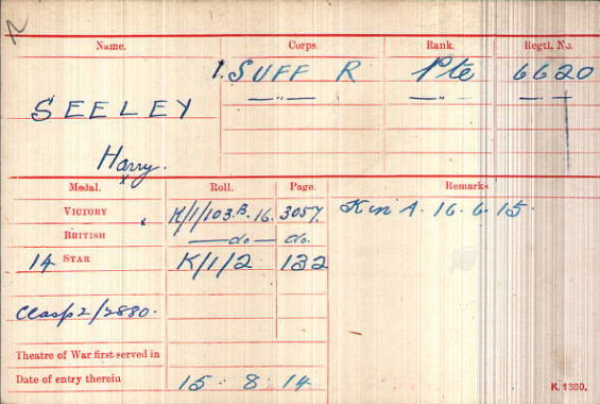 Name. Corps. Rank. Regtl. No.
1. SUFF R Pte 6620
—"— —"— —"—
SEELEY
Harry.
Medal. Roll. Page. Remarks
VICTORY K/1/103.B.16. 3057. K in A. 16.6.15.
BRITISH —do— do.
14 STAR K/1/2 132
Clasp 2/2880.
Theatre of War first served in
Date of entry therein 15. 8. 14
K. 1380.